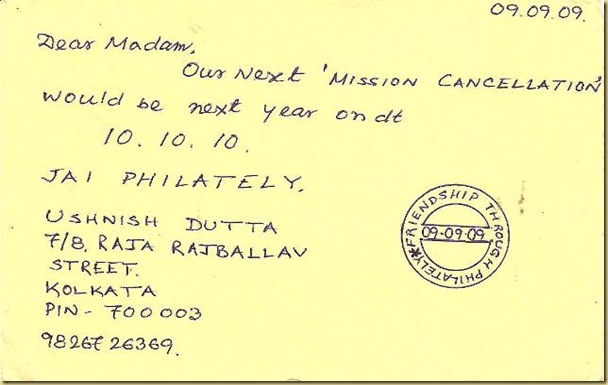 09.09.09.
Dear Madam,
Our Next 'MISSION CANCELLATION'
would be next year on dt
10.10.10.
JAI PHILATELY.
USHNISH DUTTA
7/8, RAJA RAJBALLAV
STREET.
KOLKATA
PIN - 700003
9826726369.
FRIENDSHIP THROUGH PHILATELY
09-09-09